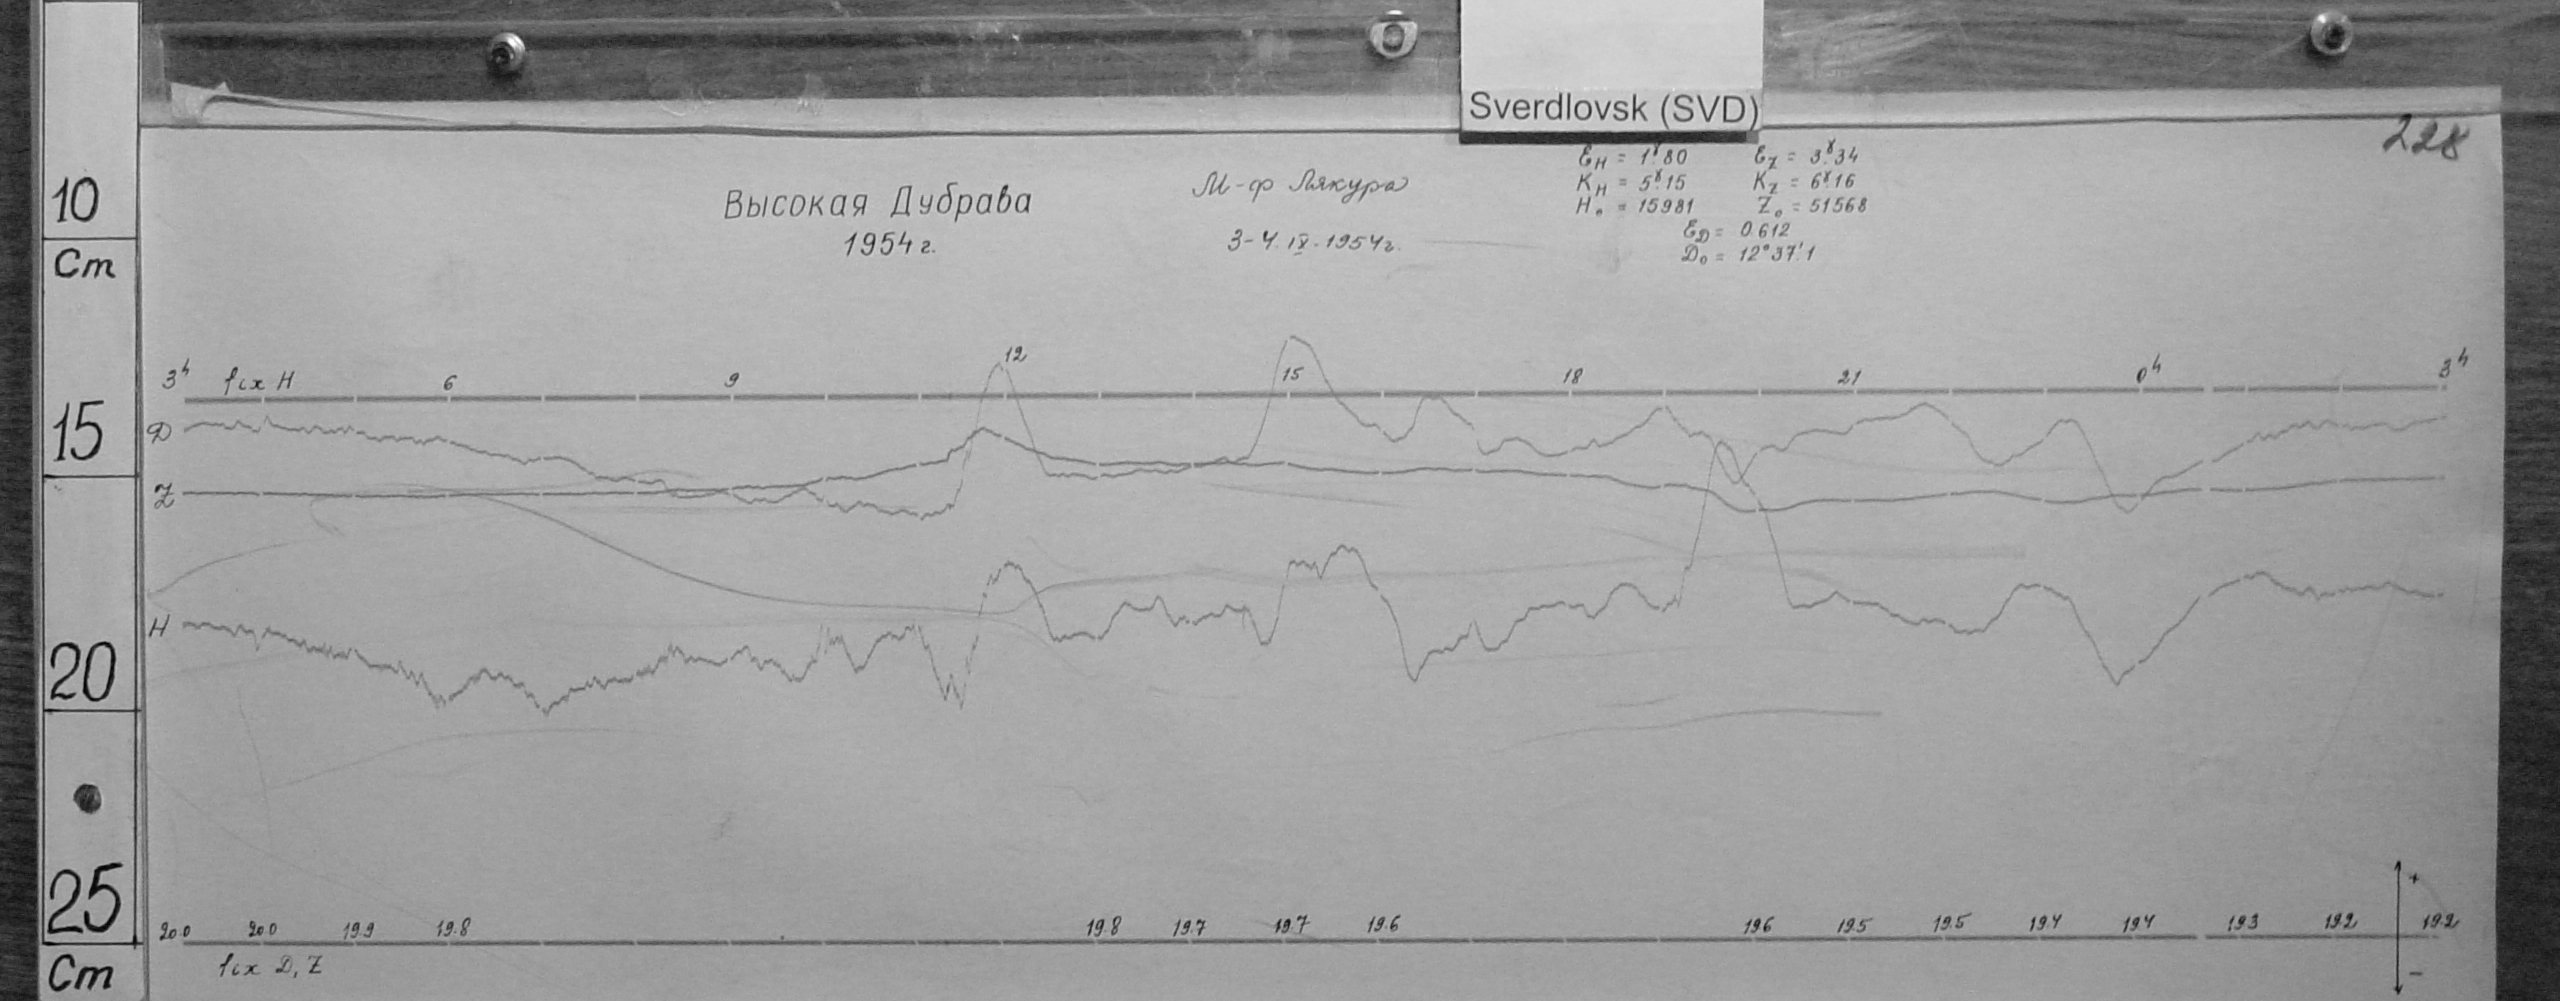 Sverdlovsk (SVD)
228
10
Cm
15
20
25
Cm
Высокая Дубрава
1954 г.
М-ф Лякура
3-4. IX. 1954г.
εH = 1ˠ.80 εZ = 3ˠ.34
KH = 5ˠ.15 KZ = 6ˠ.16
H₀ = 15981 Z₀ = 51568
ED = 0.612
D₀ = 12°37'.1
3h fix H 6 9 12 15 18 21 0h 3h
D
Z
H
20.0 20.0 19.9 19.8 19.8 19.7 19.7 19.6 19.6 19.5 19.5 19.4 19.4 19.3 19.2 19.2
fix D, Z
+
−